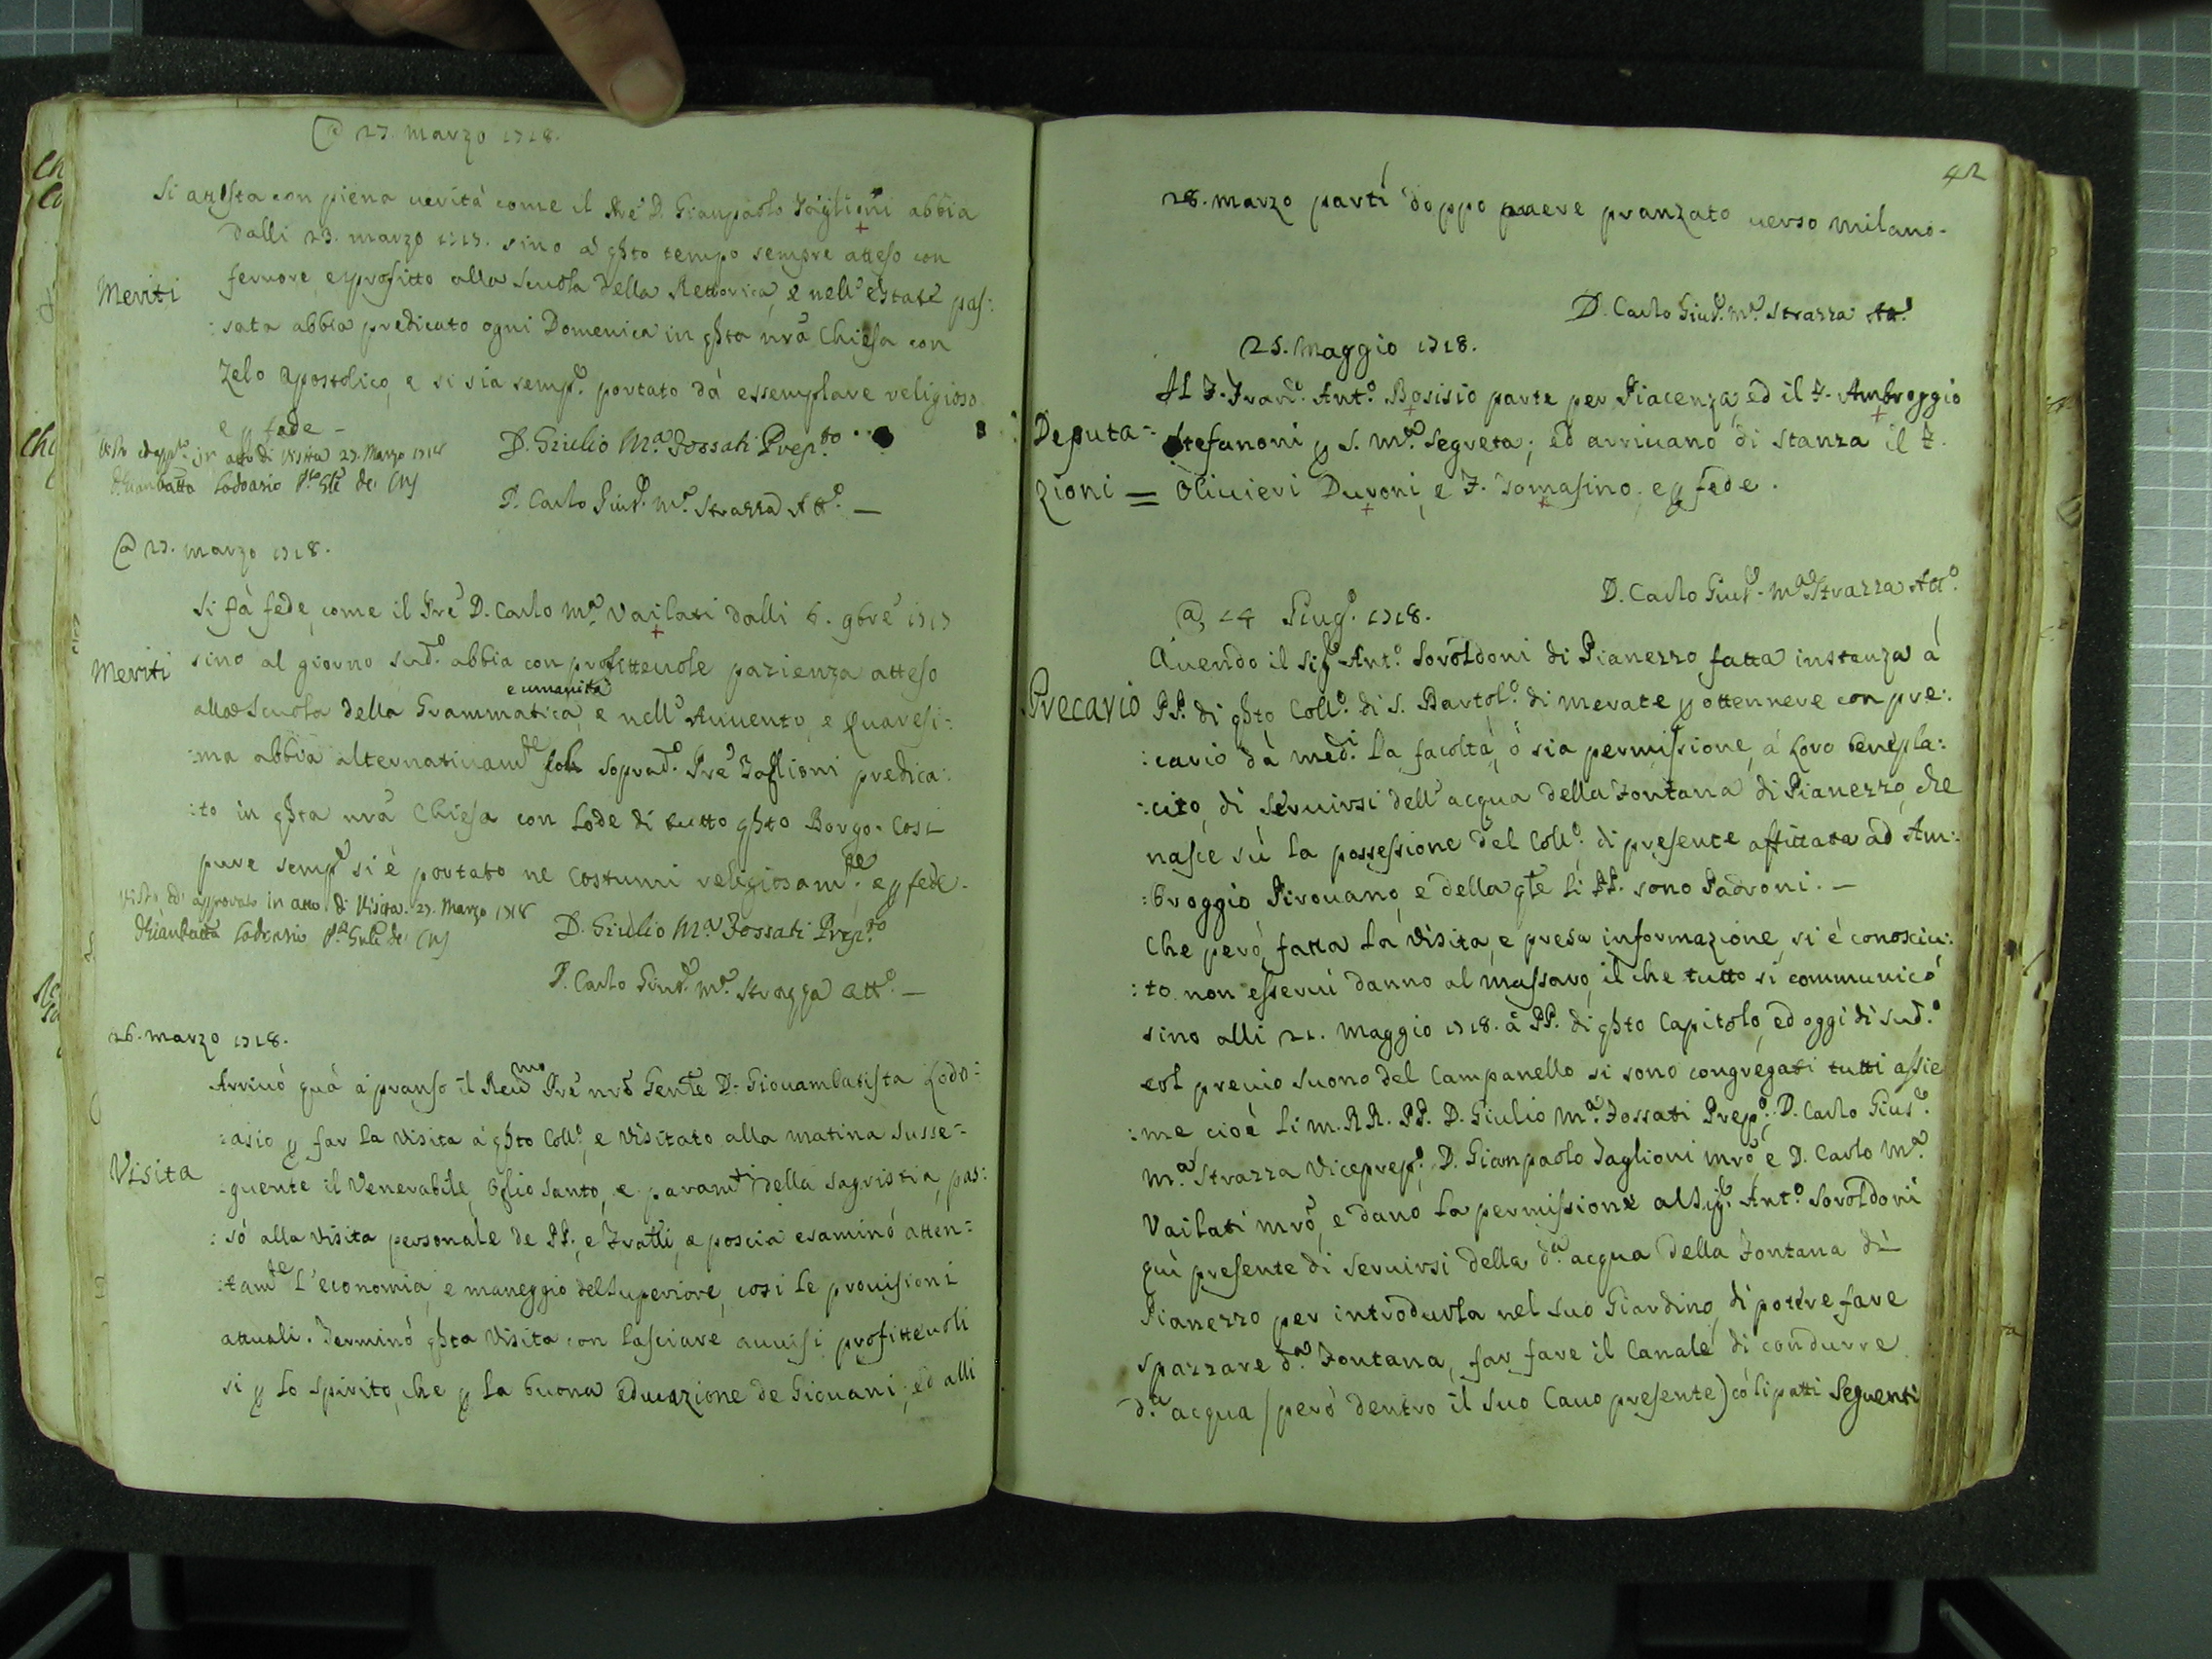 @ 27. marzo 1718.
Si attesta con piena verità come il Pre D. Gianpaolo Taglioni abbia
dalli 23. marzo 1717. sino à qsto tempo sempre atteso con
Meriti
fervore, e profitto alla scuola della Rettorica, e nell'estate pas:
:sata abbia predicato ogni Domenica in qsta nra Chiesa con
zelo apostolico, e si sia semp.e portato dà essemplare religioso
e p fede –
Visto ed app.to in atto di Visita 27. Marzo 1718
D. Giulio M.a Fossati Prep.to
D Gianbatta Lodoasio P.re Gle de CRS
D. Carlo Gius.e M.a Strazza Att.o —
@ 27. marzo 1718.
Si fà fede, come il Pre D. Carlo M.a Vailati dalli 6. 9bre 1717
Meriti
sino al giorno sud.o abbia con profittevole pazienza atteso
alla Scuola della Grammatica, e umanità e nell'Avvento, e Quaresi:
:ma abbia alternativam.te col soprad.o Pre Taglioni predica:
:to in qsta nra Chiesa con lode di tutto qsto Borgo. Così
pure semp.e si è portato ne costumi religiosam.te, e p fede.
Visto ed approvato in atto di Visita. 27. Marzo 1718
D Gianbatta Lodoasio P.re Gnle de CRS
D. Giulio M.a Fossati Prep.to
D. Carlo Gius.e M.a Strazza Att.o —
26. marzo 1718.
Arrivò quà à pranso il Rev.mo Pre nrõ Gen.le D. Giovambatista Lodo:
:asio p far la visita à qsto Coll.o, e visitato alla matina susse:
Visita
:guente il Venerabile, Oglio santo, e param.ti della sagristia, pas:
:sò alla visita personale de PP., e Fratlli, e poscia esaminò atten:
:tam.te l'economia, e maneggio del Superiore, così le provisioni
attuali. Terminò qsta visita con lasciare avvisi profittevoli
si p lo spirito, che p la buona educazione de Giovani, ed alli
42
28. marzo partì doppo avere pranzato verso milano.
D. Carlo Gius.e M.a Strazza Att.o
25. Maggio 1718.
Il F. Fran.o Ant.o Bosisio parte per Piacenza, ed il F. Ambroggio
Deputa=
Stefanoni p S. M.a Segreta; ed arrivano di stanza il F.
zioni =
Olivieri Duroni, e F. Tomasino. e p fede.
D. Carlo Gius.e M.a Strazza Att.o
@ 14 Giug.o 1718.
Avendo il sig.r Ant.o Soroldoni di Pianezzo fatta instanza á
Precario
PP. di qsto Coll.o di S. Bartol.o di Merate p ottennere con pre:
:cario dà med.i la facoltà, ò sia permissione, à loro benepla:
:cito, di servirsi dell'acqua della Fontana di Pianezzo, che
nasce sù la possessione del Coll.o di presente affittata ad Am:
:broggio Pirovano, e della qle li PP. sono Padroni. —
Che però, fatta la visita, e presa informazione, si è conosciu:
:to non esservi danno al massaro, il che tutto si communicò
sino alli 21. Maggio 1718. à PP. di qsto Capitolo, ed oggi dì sud.o
col previo suono del Campanello si sono congregati tutti assie
:me cioè li m. RR. PP. D. Giulio M.a Fossati Prep.o, D. Carlo Gius.e
M.a Strazza Viceprep.o, D. Gianpaolo Taglioni mrõ, e D. Carlo M.a
Vailati mrõ, e dano la permissione al Sig.r Ant.o Soroldoni
quì presente di servirsi della d.a acqua della Fontana di
Pianezzo per introdurla nel suo Giardino, di potere fare
spazzare d.a Fontana, far fare il Canale di condurre
d.a acqua (però dentro il suo Cavo presente) cõ li patti seguenti